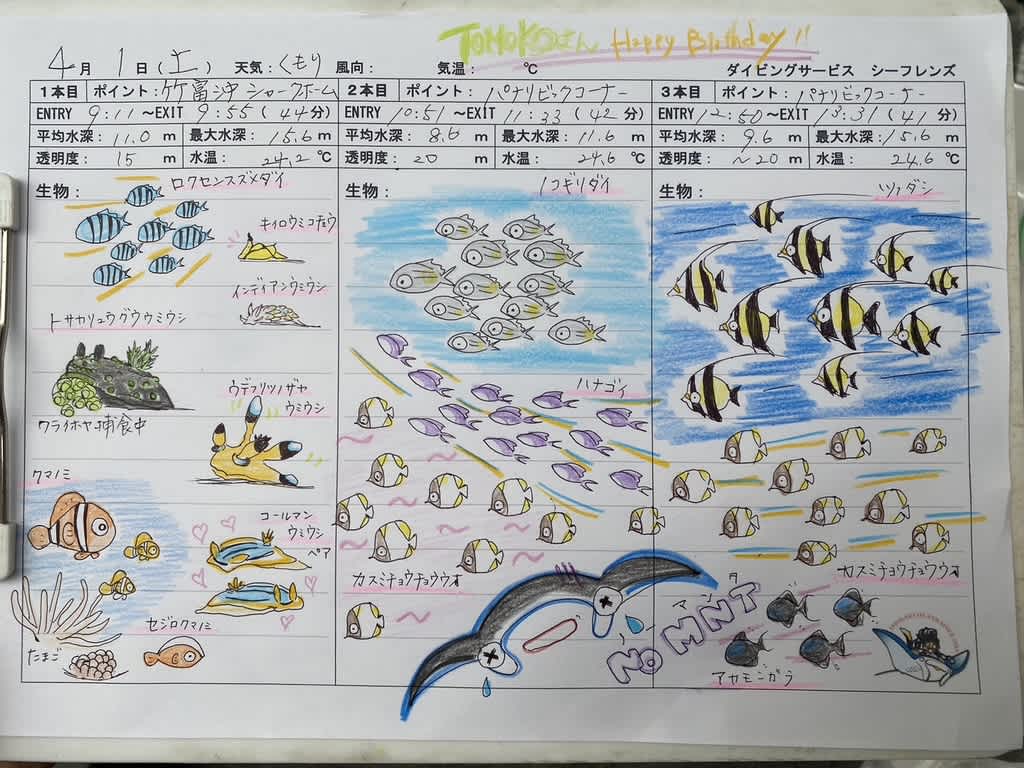 TOMOKOさん Happy Birthday!!
4月 1日(土) 天気:くもり 風向: 気温: ℃ ダイビングサービス シーフレンズ
1本目 ポイント:竹富沖 シャークホーム
ENTRY 9:11 ~EXIT 9:55 (44分)
平均水深: 11.0 m 最大水深: 15.6 m
透明度: 15 m 水温: 24.2 ℃
生物:
ロクセンスズメダイ
キイロウミコチョウ
インディアンウミウシ
トサカリュウグウウミウシ
ワライボヤ捕食中
ウデフリツノザヤ
ウミウシ
クマノミ
コールマン
ウミウシ
ペア
セジロクマノミ
たまご
2本目 ポイント: パナリビックコーナー
ENTRY 10:51 ~EXIT 11:33 (42分)
平均水深: 8.6 m 最大水深: 11.6 m
透明度: 20 m 水温: 24.6 ℃
生物:
ノコギリダイ
ハナゴイ
カスミチョウチョウウオ
3本目 ポイント: パナリビックコーナー
ENTRY 12:50 ~EXIT 13:31 (41分)
平均水深: 9.6 m 最大水深: 15.6 m
透明度: ~20 m 水温: 24.6 ℃
生物:
ツノダシ
カスミチョウチョウウオ
マンタ
No MNT
アカモンガラ